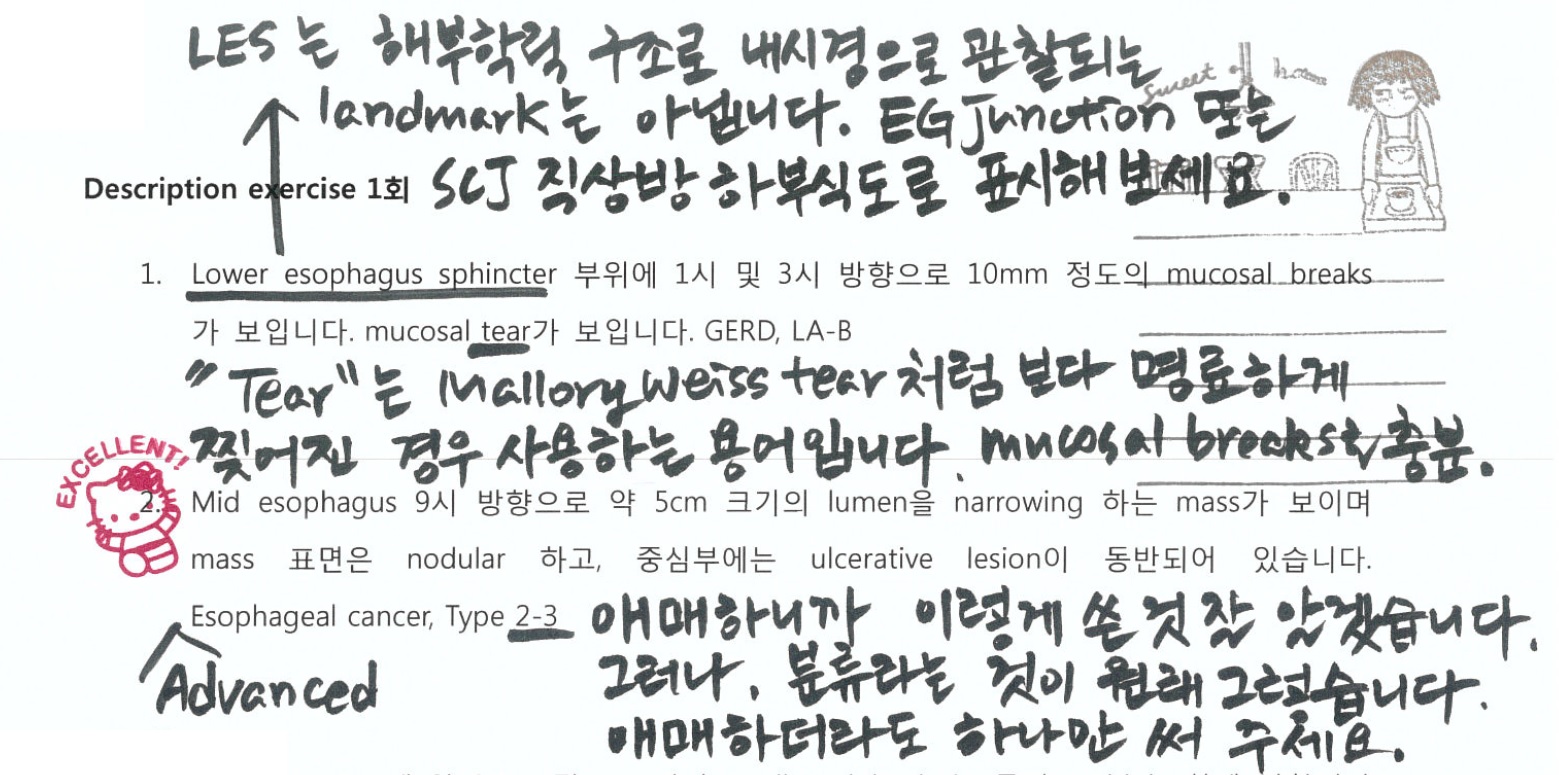 LES는 해부학적 구조로 내시경으로 관찰되는
sweet home
landmark는 아닙니다. EG Junction 또는
Description exercise 1회 SCJ 직상방 하부식도로 표시해 보세요.
1. Lower esophagus sphincter 부위에 1시 및 3시 방향으로 10mm 정도의 mucosal breaks
가 보입니다. mucosal tear가 보입니다. GERD, LA-B
"Tear"는 Mallory Weiss tear처럼 보다 명료하게
찢어진 경우 사용하는 용어입니다. mucosal breaks로 충분.
EXCELLENT!
2. Mid esophagus 9시 방향으로 약 5cm 크기의 lumen을 narrowing 하는 mass가 보이며
mass 표면은 nodular 하고, 중심부에는 ulcerative lesion이 동반되어 있습니다.
Esophageal cancer, Type 2-3 애매하니까 이렇게 쓴 것 잘 알겠습니다.
Advanced 그러나, 분류라는 것이 원래 그렇습니다.
애매하더라도 하나만 써 주세요.